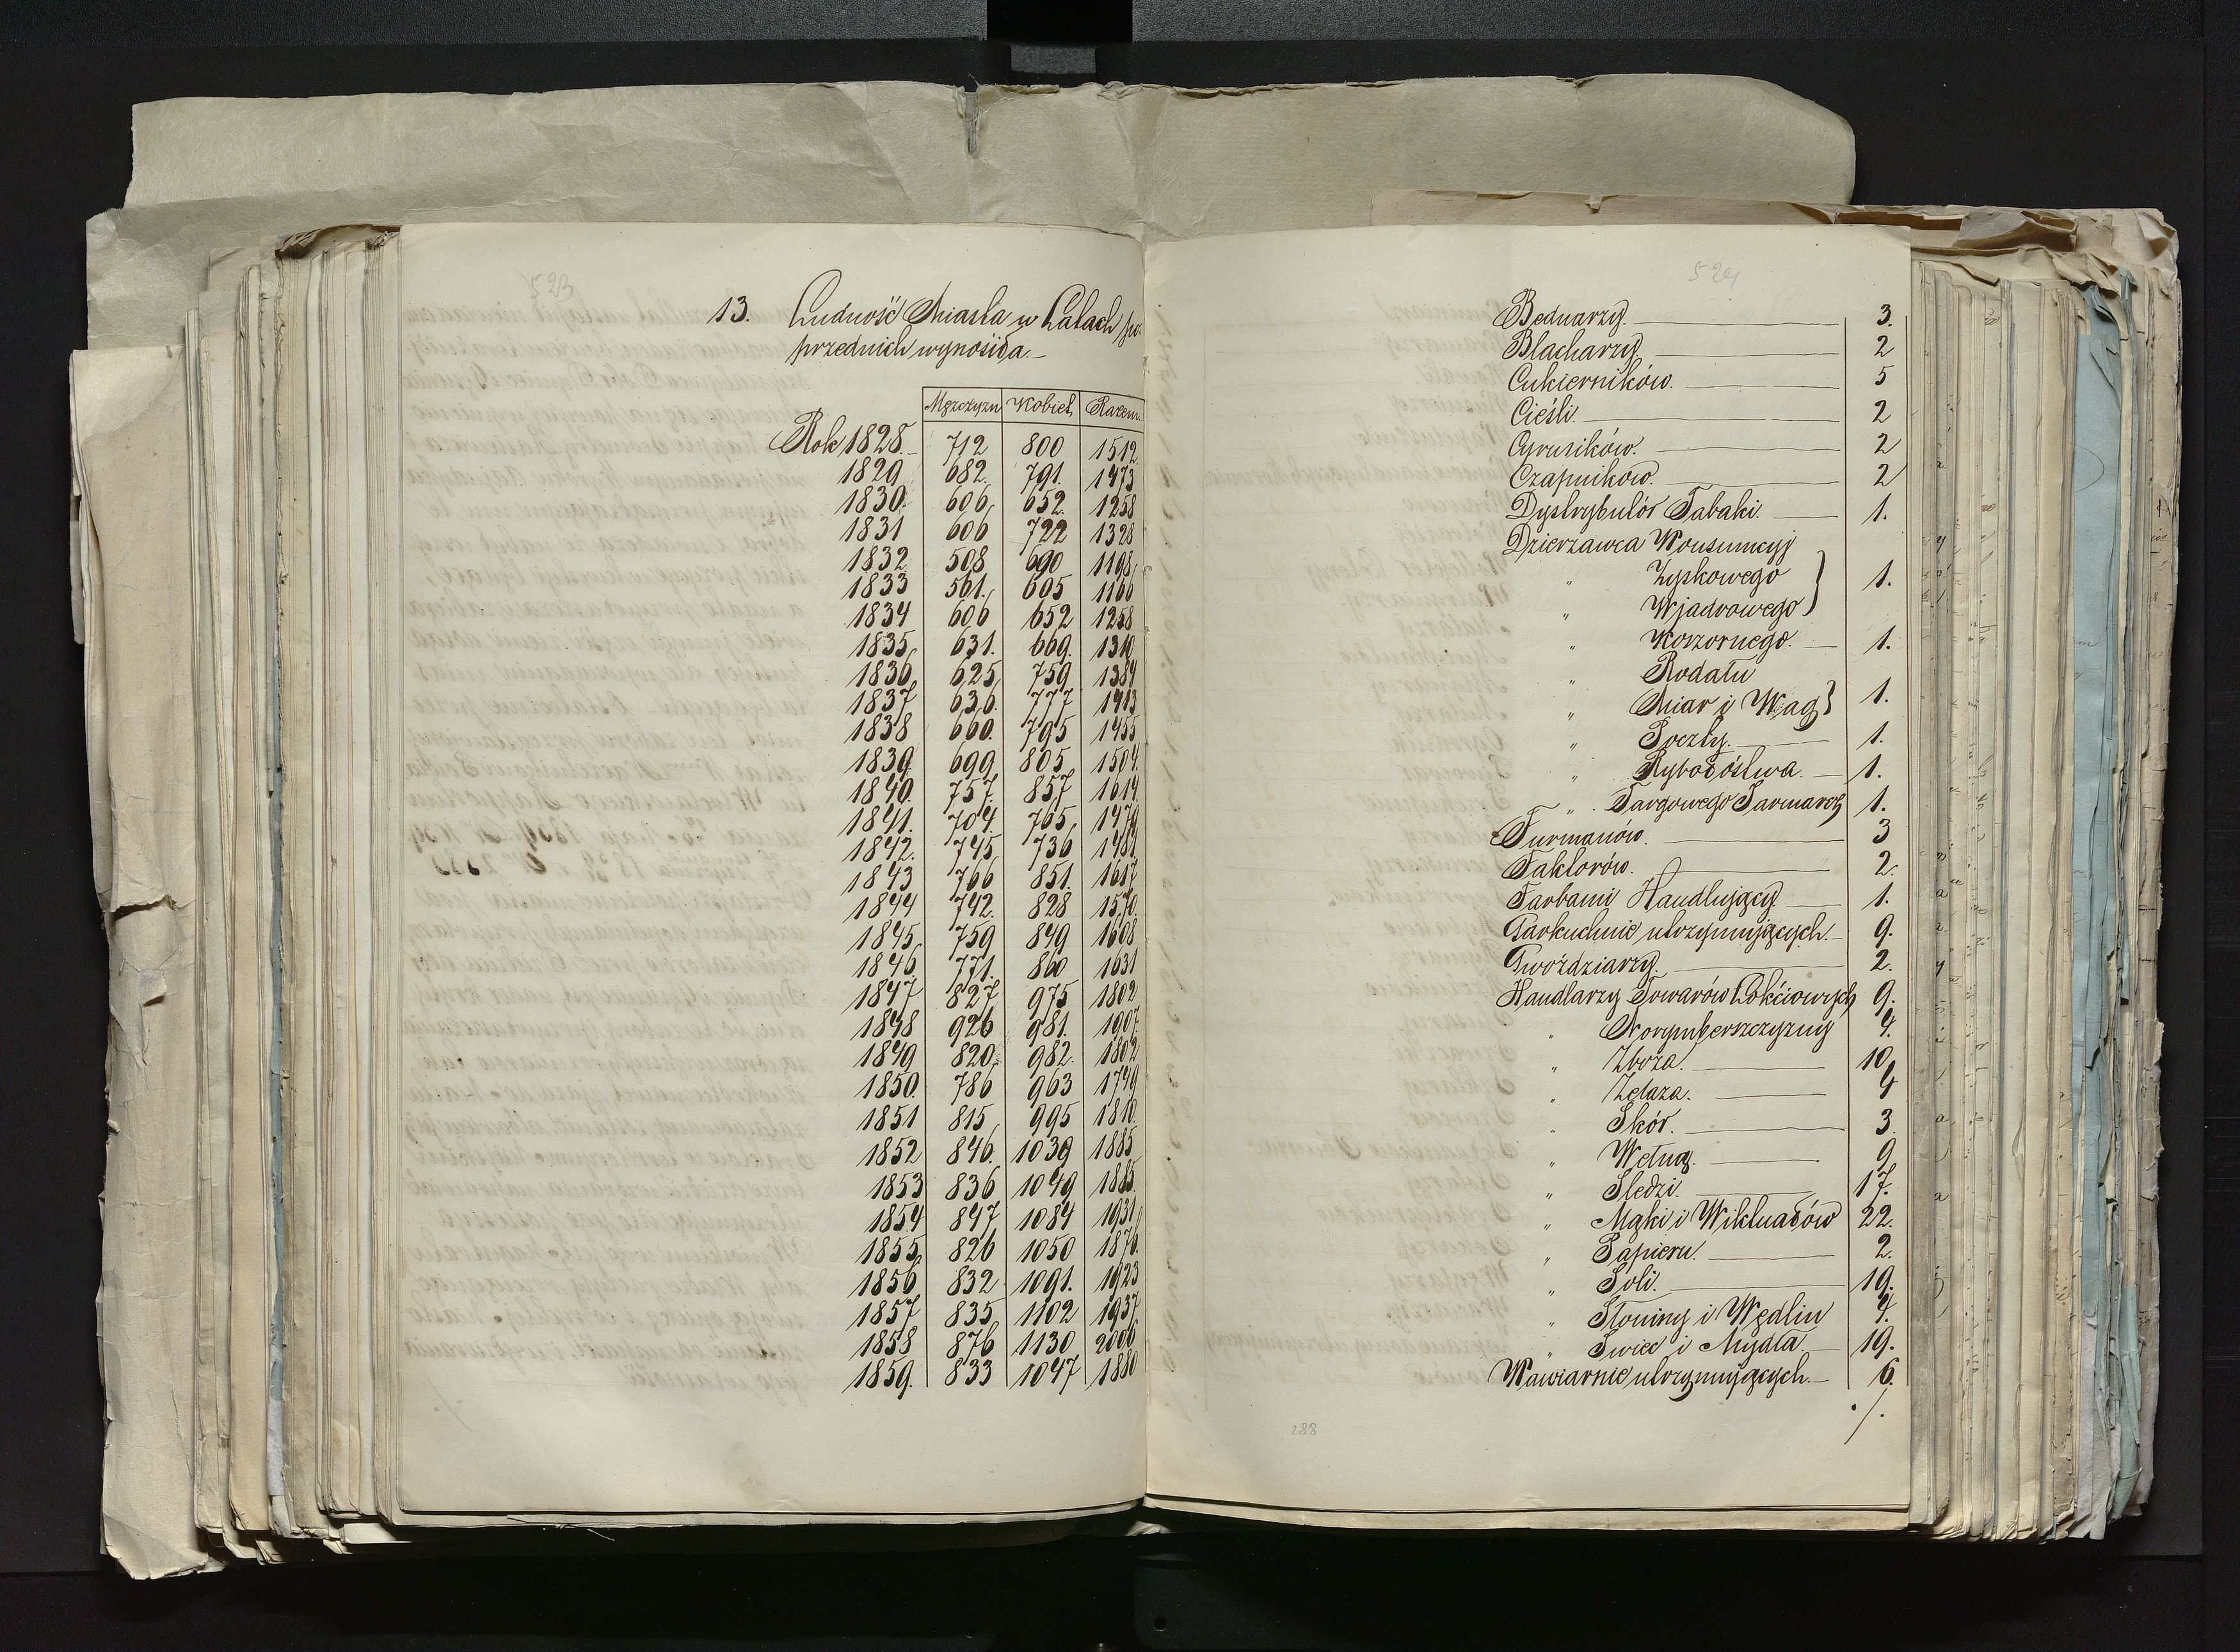 523
13. Ludność Miasta w Latach po
przednich wynosiła.—
Mężczyzn Kobiet Razem.
Rok 1828.— 712 800 1512
1829 682. 791. 1473
1830. 606, 652. 1258
1831 606 722 1328
1832. 508 690 1198,
1833 561. 605 1166
1834 606 652 1258
1835, 631. 669. 1310
1836, 625, 759 1384
1837 636. 777 1413
1838 660. 795 1455
1839. 699 805, 1504.
1840. 757. 857 1614
1841. 704. 765. 1470
1842. 745. 736 1481
1843 766 851. 1617
1844 742. 828 1570.
1845. 759 849 1608
1846. 771. 860 1631
1847 827 975 1802
1848 926 981. 1907.
1849 820, 982. 1802
1850. 786 963 1749
1851 815, 995 1810.
1852 846. 1039 1885
1853 836 1049 1885.
1854 847 1084 1931
1855, 826 1050 1876.
1856 832 1091. 1923
1857 835 1102 1937
1858 876 1130 2006
1859. 833 1047 1880
524
Bednarzy. 3.
Blacharzy. 2
Cukierników. 5
Cieśli. 2
Cyrulików. 2
Czapników. 2
Dystrybutór Tabaki. 1.
Dzierżawca Konsumcyj
" Zyskowego } 1.
" Wjadrowego }
" Koszernego. — 1.
" Rodału
" Miar i Wag } 1.
" Poczty. 1.
" Rybołóstwa. — 1.
" Targowego Jarmarcz 1.
Furmanów. 3
Faktorów. 2.
Farbami Handlujący 1.
Garkuchnie utrzymujących.— 9.
Gwoździarzy. 2.
Handlarzy Towarów Łokciowych 9.
" Norymberszczyzny 4.
" Zboża. 10,
" Żelaza. 4
" Skór. 3.
" Wełną. 9
" Śledzi. 17.
" Mąki i Wiktuałów 22.
" Papieru. 2.
" Soli. 19.
" Słoniny i Wędlin 4.
" Świec i Mydła. 19.
Kawiarnie utrzymujących.— 6.
./.
288